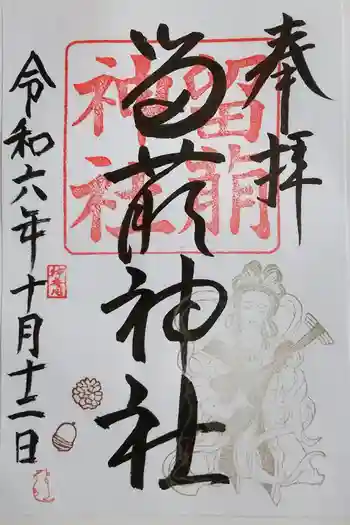 奉拝
留萌神社
留萌
神社
令和六年十月十二日